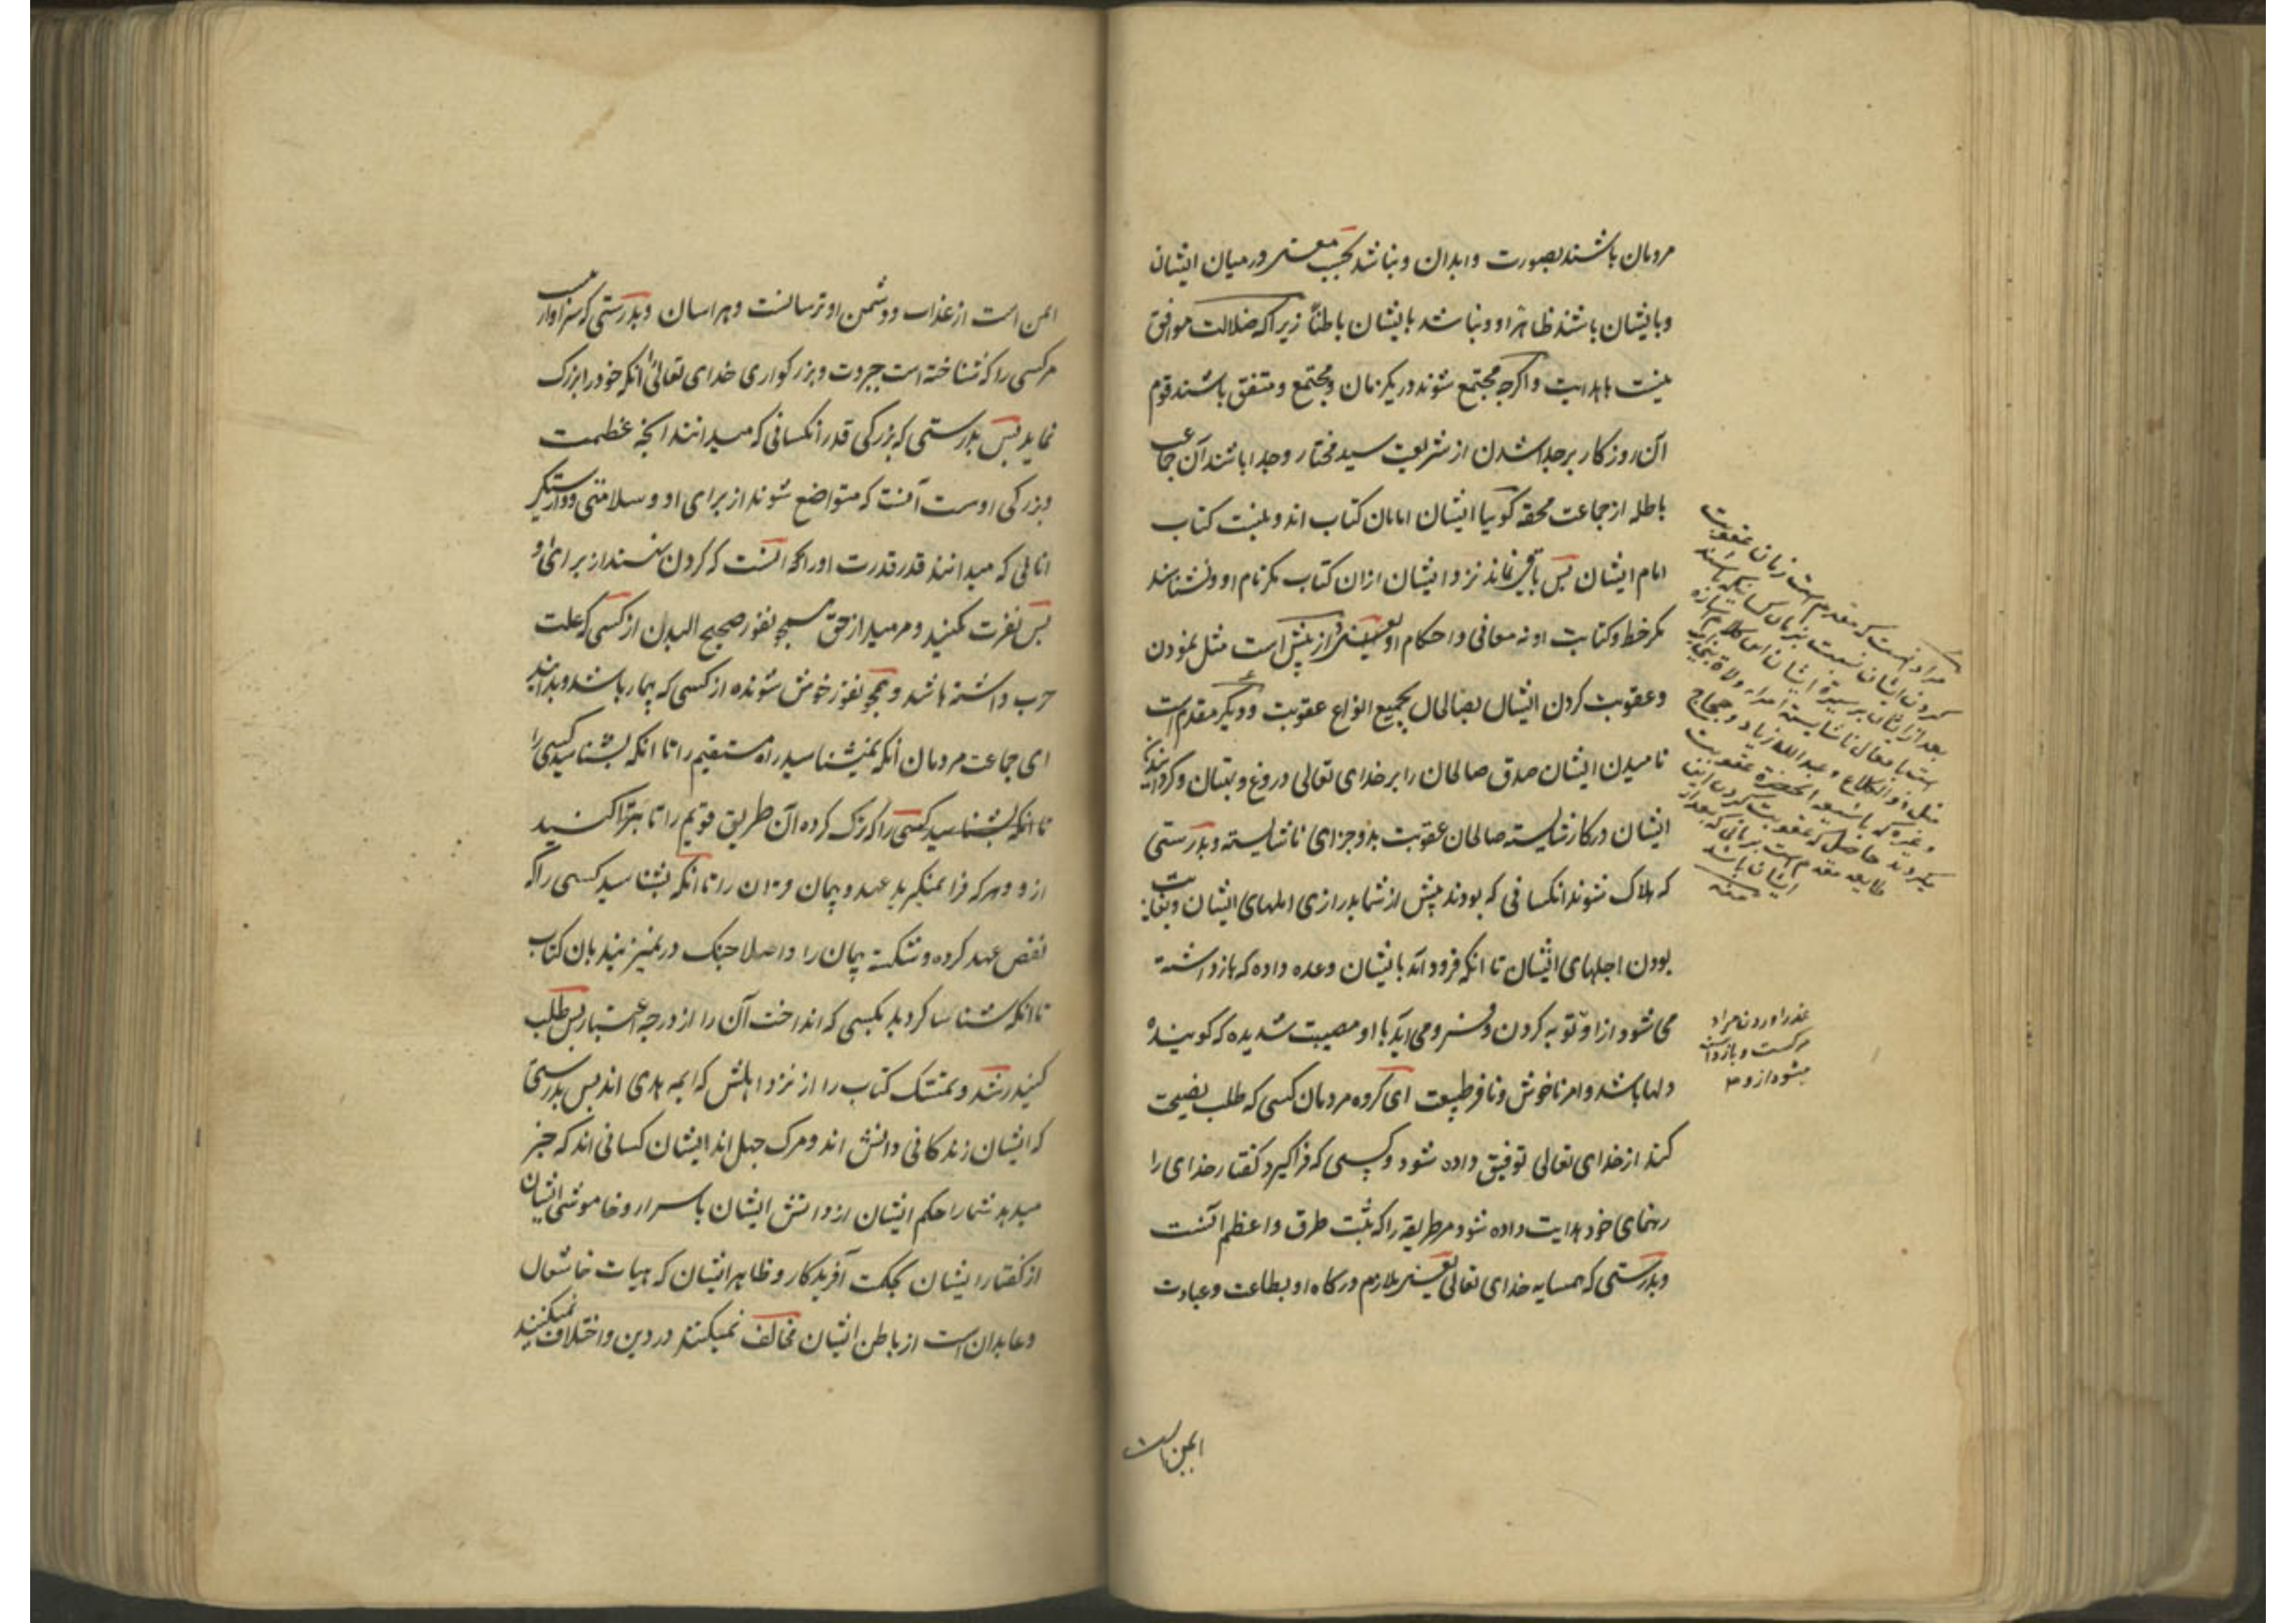 مردمان باشند بصورت و ابدان و نباشد بحسب معنی در میان ایشان
و با ایشان باشند ظاهرا و نباشد با ایشان باطناً زیرا که ضلالت موافق
نیست با هدایت و اگرچه مجتمع شوند در یکزمان و مجتمع و متفق باشند قوم
آن روزکار بر جدا شدن از شریعت سید مختار و جدا باشند آن جماعت
باطله از جماعت محقه کوییا ایشان امامان کتاب اند و نیست کتاب
امام ایشان پس باقی نماند نزد ایشان ازان کتاب مکر نام او و نشناسند
مکر خط و کتابت او نه معانی و احکام او یعنی از پیش است مثل نمودن
و عقوبت کردن ایشان بصالحان بجمیع انواع عقوبت و دیکر مقدم است
نامیدن ایشان صدق صالحان را بر خدای تعالی دروغ و بهتان و کردانیدند
ایشان در کار شایسته صالحان عقوبت بد و جزای ناشایسته و بدرستی
که هلاک شوند انکسانی که بودند پیش از شما بدرازی املهای ایشان و بغایت
بودن اجلهای ایشان تا انکه فرود آمد بایشان وعده داده که بازداشته
می شود ازو توبه کردن و فرو می آید با او مصیبت شدیده که کوبنده
دلها باشد و امر ناخوش و نافر طبیعت ای کروه مردمان کسی که طلب نصیحت
کند از خدای تعالی توفیق داده شود و کسی که فراکیرد کفتار خدای را
رهنمای خود هدایت داده شود مر طریقه را که اثبت طرق و اعظم آنست
و بدرستی که همسایه خدای تعالی یعنی ملازم درکاه او بطاعت و عبادت
مراد نیست که مقدم است زمان عقوبت
کردن ایشان نسبت بزمان کسانیکه باشند
مثل ذو الکلاع و عبد الله زیاد و حجاج
میکردند حاصل که عقوبت کردن این
طایفه مقدم است بر زمانی که بعد از
ایشان باشد
منه
عذر آوردن مراد
مرکست و بازداشته
میشود ازو
ایمن است
ایمن است از عذاب و دشمن او ترسانست و هراسان و بدرستی که سزاوار نیست
مر کسی را که شناخته است جبروت و بزرکواری خدای تعالی انکه خود را بزرک
نماید پس بدرستی که بزرکی قدر انکسانی که میدانند انچه عظمت
و بزرکی اوست آنست که متواضع شوند از برای او و سلامتی و رستکاری
انانی که میدانند قدر قدرت او را آنست که کردن نهند از برای او
پس نفرت مکنید و مرمید از حق همچو نفور صحیح البدن از کسی که علت
جرب داشته باشد و همچو نفور خوش شونده از کسی که بیمار باشد و بدانید
ای جماعت مردمان انکه نمیشناسید راه مستقیم را تا انکه بشناسید کسی را
تا انکه بشناسید کسی را که ترک کرده آن طریق قویم را تا تبرا کنید
ازو و هرکه فرا نمیکیرید عهد و پیمان قران را تا انکه بشناسید کسی را که
نقض عهد کرده و شکسته پیمان را و اصلا چنک در نمیزنید بان کتاب
تا انکه شناسا کردید بکسی که انداخت آن را از درجه اعتبار پس طلب
کنید رشد و تمسک کتاب را از نزد اهلش که ایمه هدی اند پس بدرستی
که ایشان زندکانی دانش اند و مرک جهل اند ایشان کسانی اند که خبر
میدهد شما را حکم ایشان از دانش ایشان باسرار و خاموشی ایشان
از کفتار ایشان بحکمت آفریدکار و ظاهر ایشان که هیات خاشعان
و عابدان است از باطن ایشان مخالف نمیکنند در دین و اختلاف نمیکنند